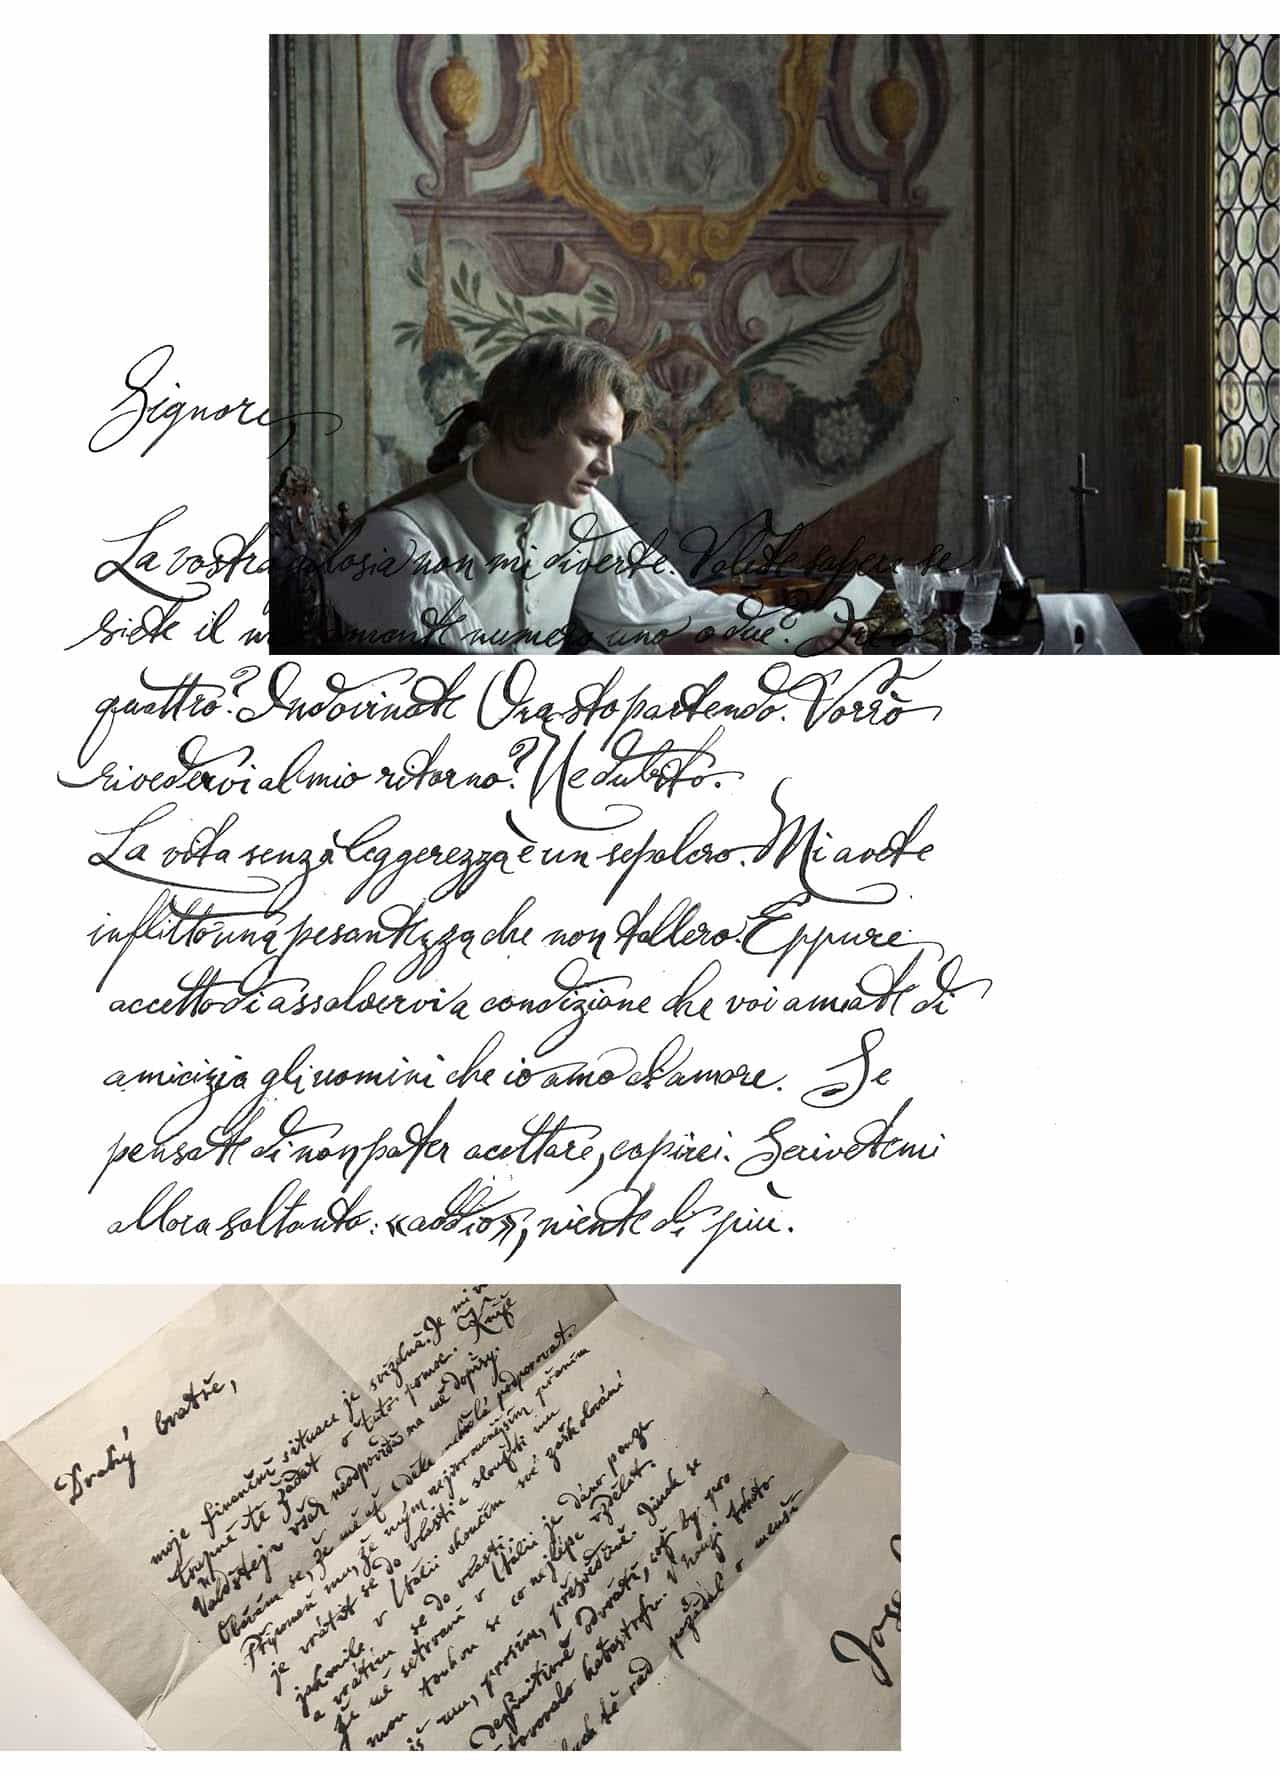 Signore,
La vostra gelosia non mi diverte. Volete sapere se
siete il mio amante numero uno o due? Tre o
quattro? Indovinate Ora sto partendo. Vorrò
rivedervi al mio ritorno? Ne dubito.
La vita senza leggerezza è un sepolcro. Mi avete
inflitto una pesantezza che non tollero. Eppure
accetto di assolvervi a condizione che voi amiate di
amicizia gli uomini che io amo di amore. Se
pensate di non poter accettare, capirei. Scrivetemi
allora soltanto: «addio», niente di più.
Drahý bratře,
moje finanční situace je svízelná. Je mi
trapné tě žádat o tuto pomoc. Kníže
Valdštejn však neodpovídá na mé dopisy.
Obávám se, že mě už déle nehodlá podporovat.
Připomeň mu, že mým nejvroucnějším přáním
je vrátit se do vlasti a sloužit mu
jakmile v Itálii skončím své zaškolování
a vrátím se do vlasti.
že mé setrvání v Itálii je dáno pouze
mou touhou se co nejlépe vzdělat.
mu, prosím, přesvědčivě. Jinak se
definitivně odvrátí, což by pro
katastrofu. V nouzi tohoto
tě rád požádal o menší
Jose